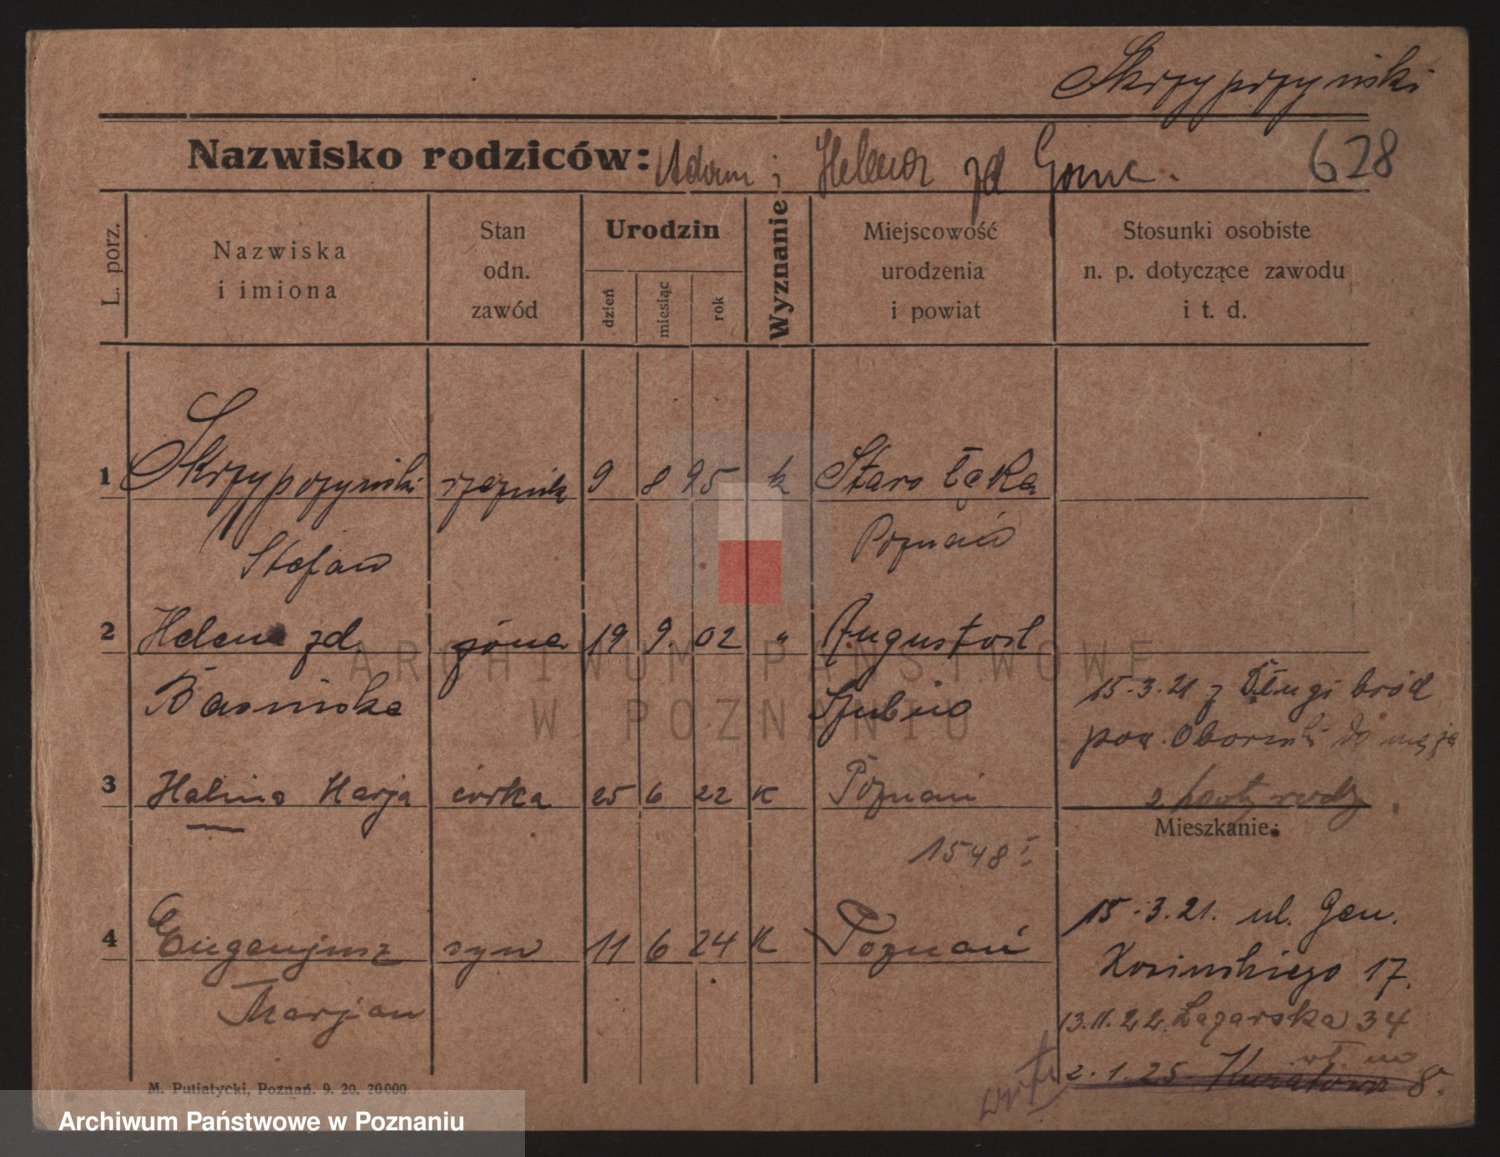 Skrzypczyński
Nazwisko rodziców: Adam i Helena zd Gorne.
628
L. porz.
Nazwiska
i imiona
Stan
odn.
zawód
Urodzin
dzień
miesiąc
rok
Wyznanie
Miejscowość
urodzenia
i powiat
Stosunki osobiste
n. p. dotyczące zawodu
i t. d.
1 Skrzypczyński rzeźnik 9 8 95 k Staro Łęka
Stefan Poznań
2 Helena zd. żona 19 9. 02 " Augustost
Basinska Szubin
15-3.21 z Długi bród
pow. Obornicki do męża
3 Halina Marja córka 25 6 22 K Poznań
Mieszkanie:
1548 I
4 Eugenjusz syn 11 6 24 K Poznań
Marjan
15-3.21. ul. Gen.
Kosinskiego 17.
13.11.22. Łazarska 34
2.1.25. Kwiatowa 8.
M. Putiatycki, Poznań. 9. 20. 20000
ARCHIWUM PAŃSTWOWE
W POZNANIU
Archiwum Państwowe w Poznaniu